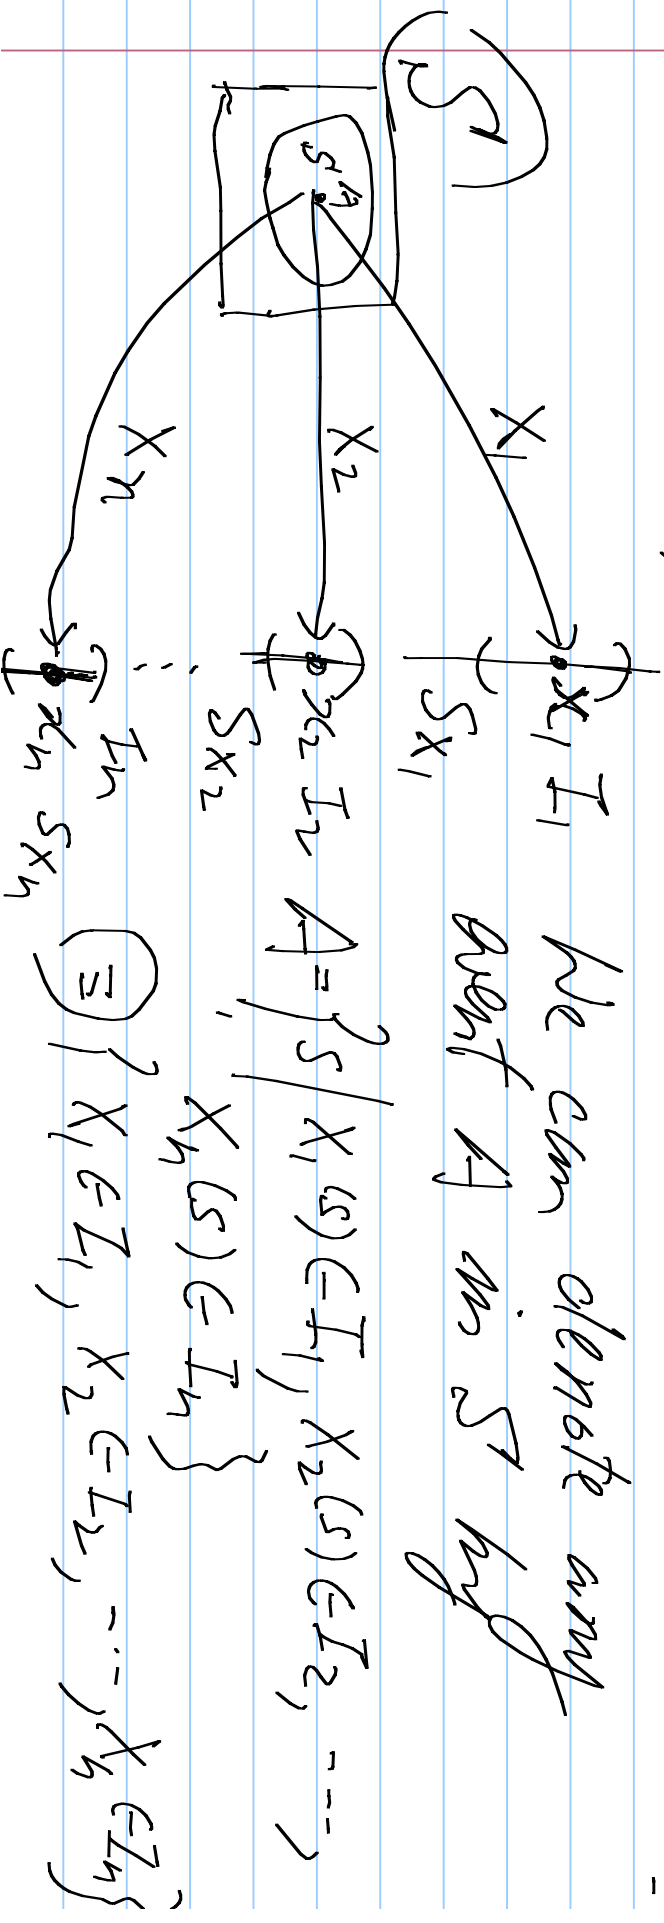 S
s A
X₁
X₂
Xₙ
x₁ I₁
Sx₁
x₂ I₂
Sx₂
...
Iₙ
xₙ Sxₙ
We can denote any
event A in S by
A = {s | X₁(s) ∈ I₁, X₂(s) ∈ I₂, ---,
Xₙ(s) ∈ Iₙ}
≡ {X₁ ∈ I₁, X₂ ∈ I₂, ---, Xₙ ∈ Iₙ}